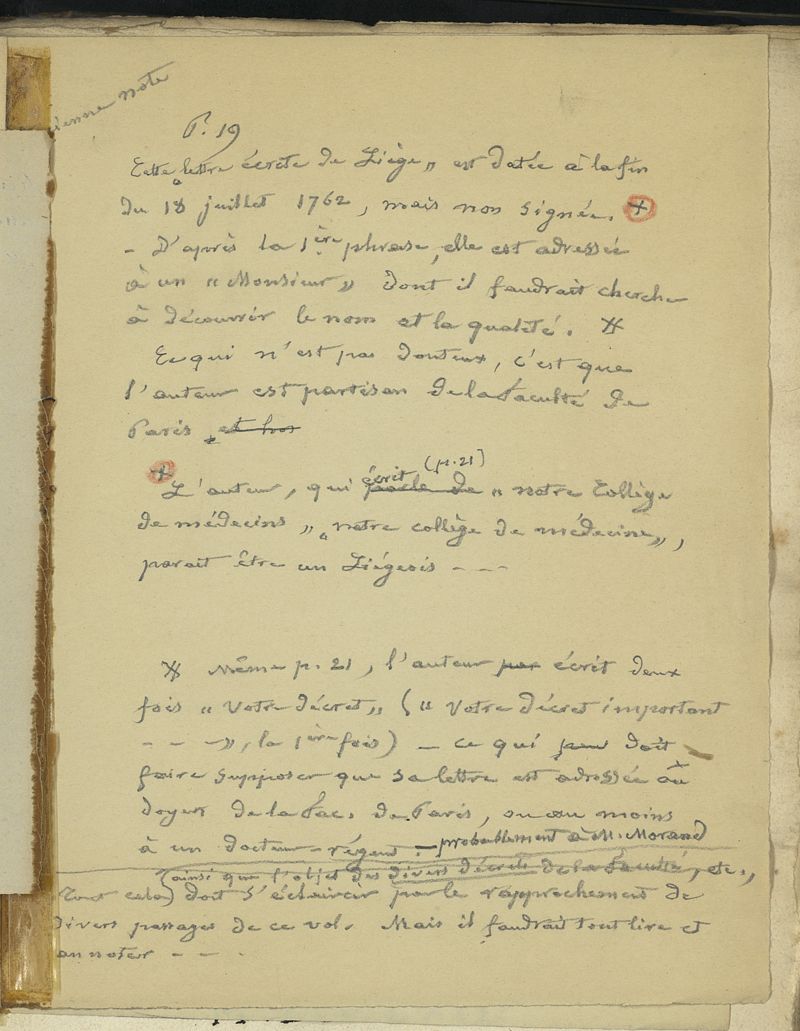 note
P. 19
Cette « lettre écrite de Liège » est datée à la fin
du 18 juillet 1762, mais non signée. +
- D'après la 1ère phrase, elle est adressée
à un « Monsieur » dont il faudrait cherche
à découvrir le nom et la qualité.
Ce qui n'est pas douteux, c'est que
l'auteur est partisan de la Faculté de
Paris et hos
+ L'auteur, qui parle de écrit (p. 21) « notre Collège
de médecins », « notre collège de médecine »,
parait être un Liégeois - - -
Même p. 21, l'auteur par écrit deux
fois « Votre décret » (« Votre décret important
- - - », la 1ère fois) - ce qui peu doit
faire supposer que sa lettre est adressée au
doyen de la Fac. de Paris, ou au moins
à un docteur-régent. - probablement à M. Morand
(ainsi que l'objet des divers décrets de la Faculté, etc.,
Tout cela) doit s'éclaircir par le rapprochement de
divers passages de ce vol. Mais il faudrait tout lire et
annoter - - -